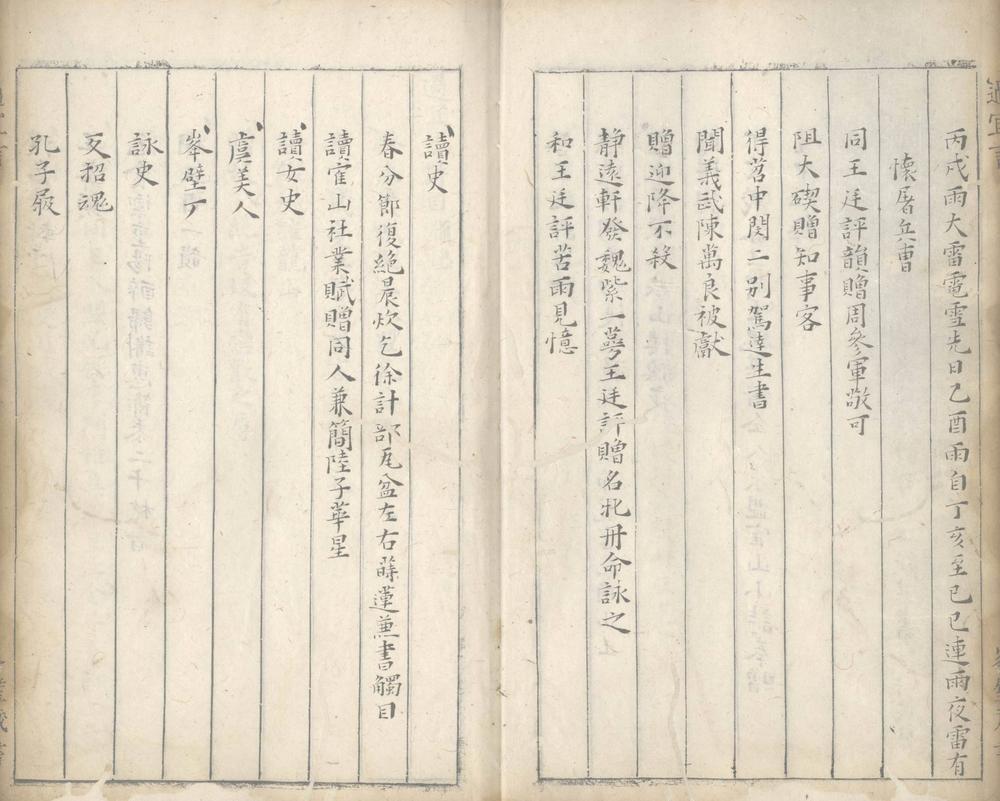 丙戌雨大雷電雪先日乙酉雨自丁亥至己巳連雨夜雷有
懷屠兵曹
同王廷評韻贈周參軍敬可
阻大碶贈知事客
得茗中閔二別駕達生書
聞義武陳萬良被獻
贈迎降不殺
静遠軒發魏紫一蕚王廷評贈名牝冊命詠之
和王廷評苦雨見憶
讀史
春分節復絶晨炊乞徐計部瓦盆左右蒔蓮兼書觸目
讀霍山社業賦贈同人兼簡陸子華星
讀女史
虞美人
峯壁丁
詠史
反招魂
孔子屐